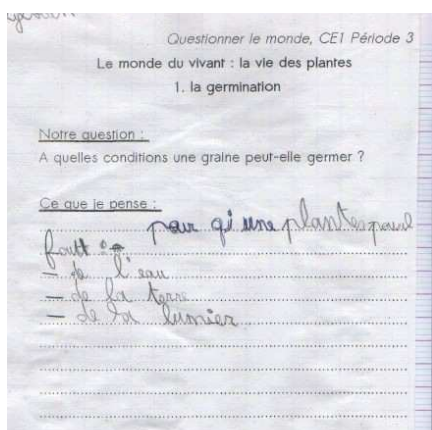 Questionner le monde, CE1 Période 3
Le monde du vivant : la vie des plantes
1. la germination
Notre question :
A quelles conditions une graine peut-elle germer ?
Ce que je pense :
pour qi une plante pouse
fautt :
- de l'eau
- de la terre
- de la lumier